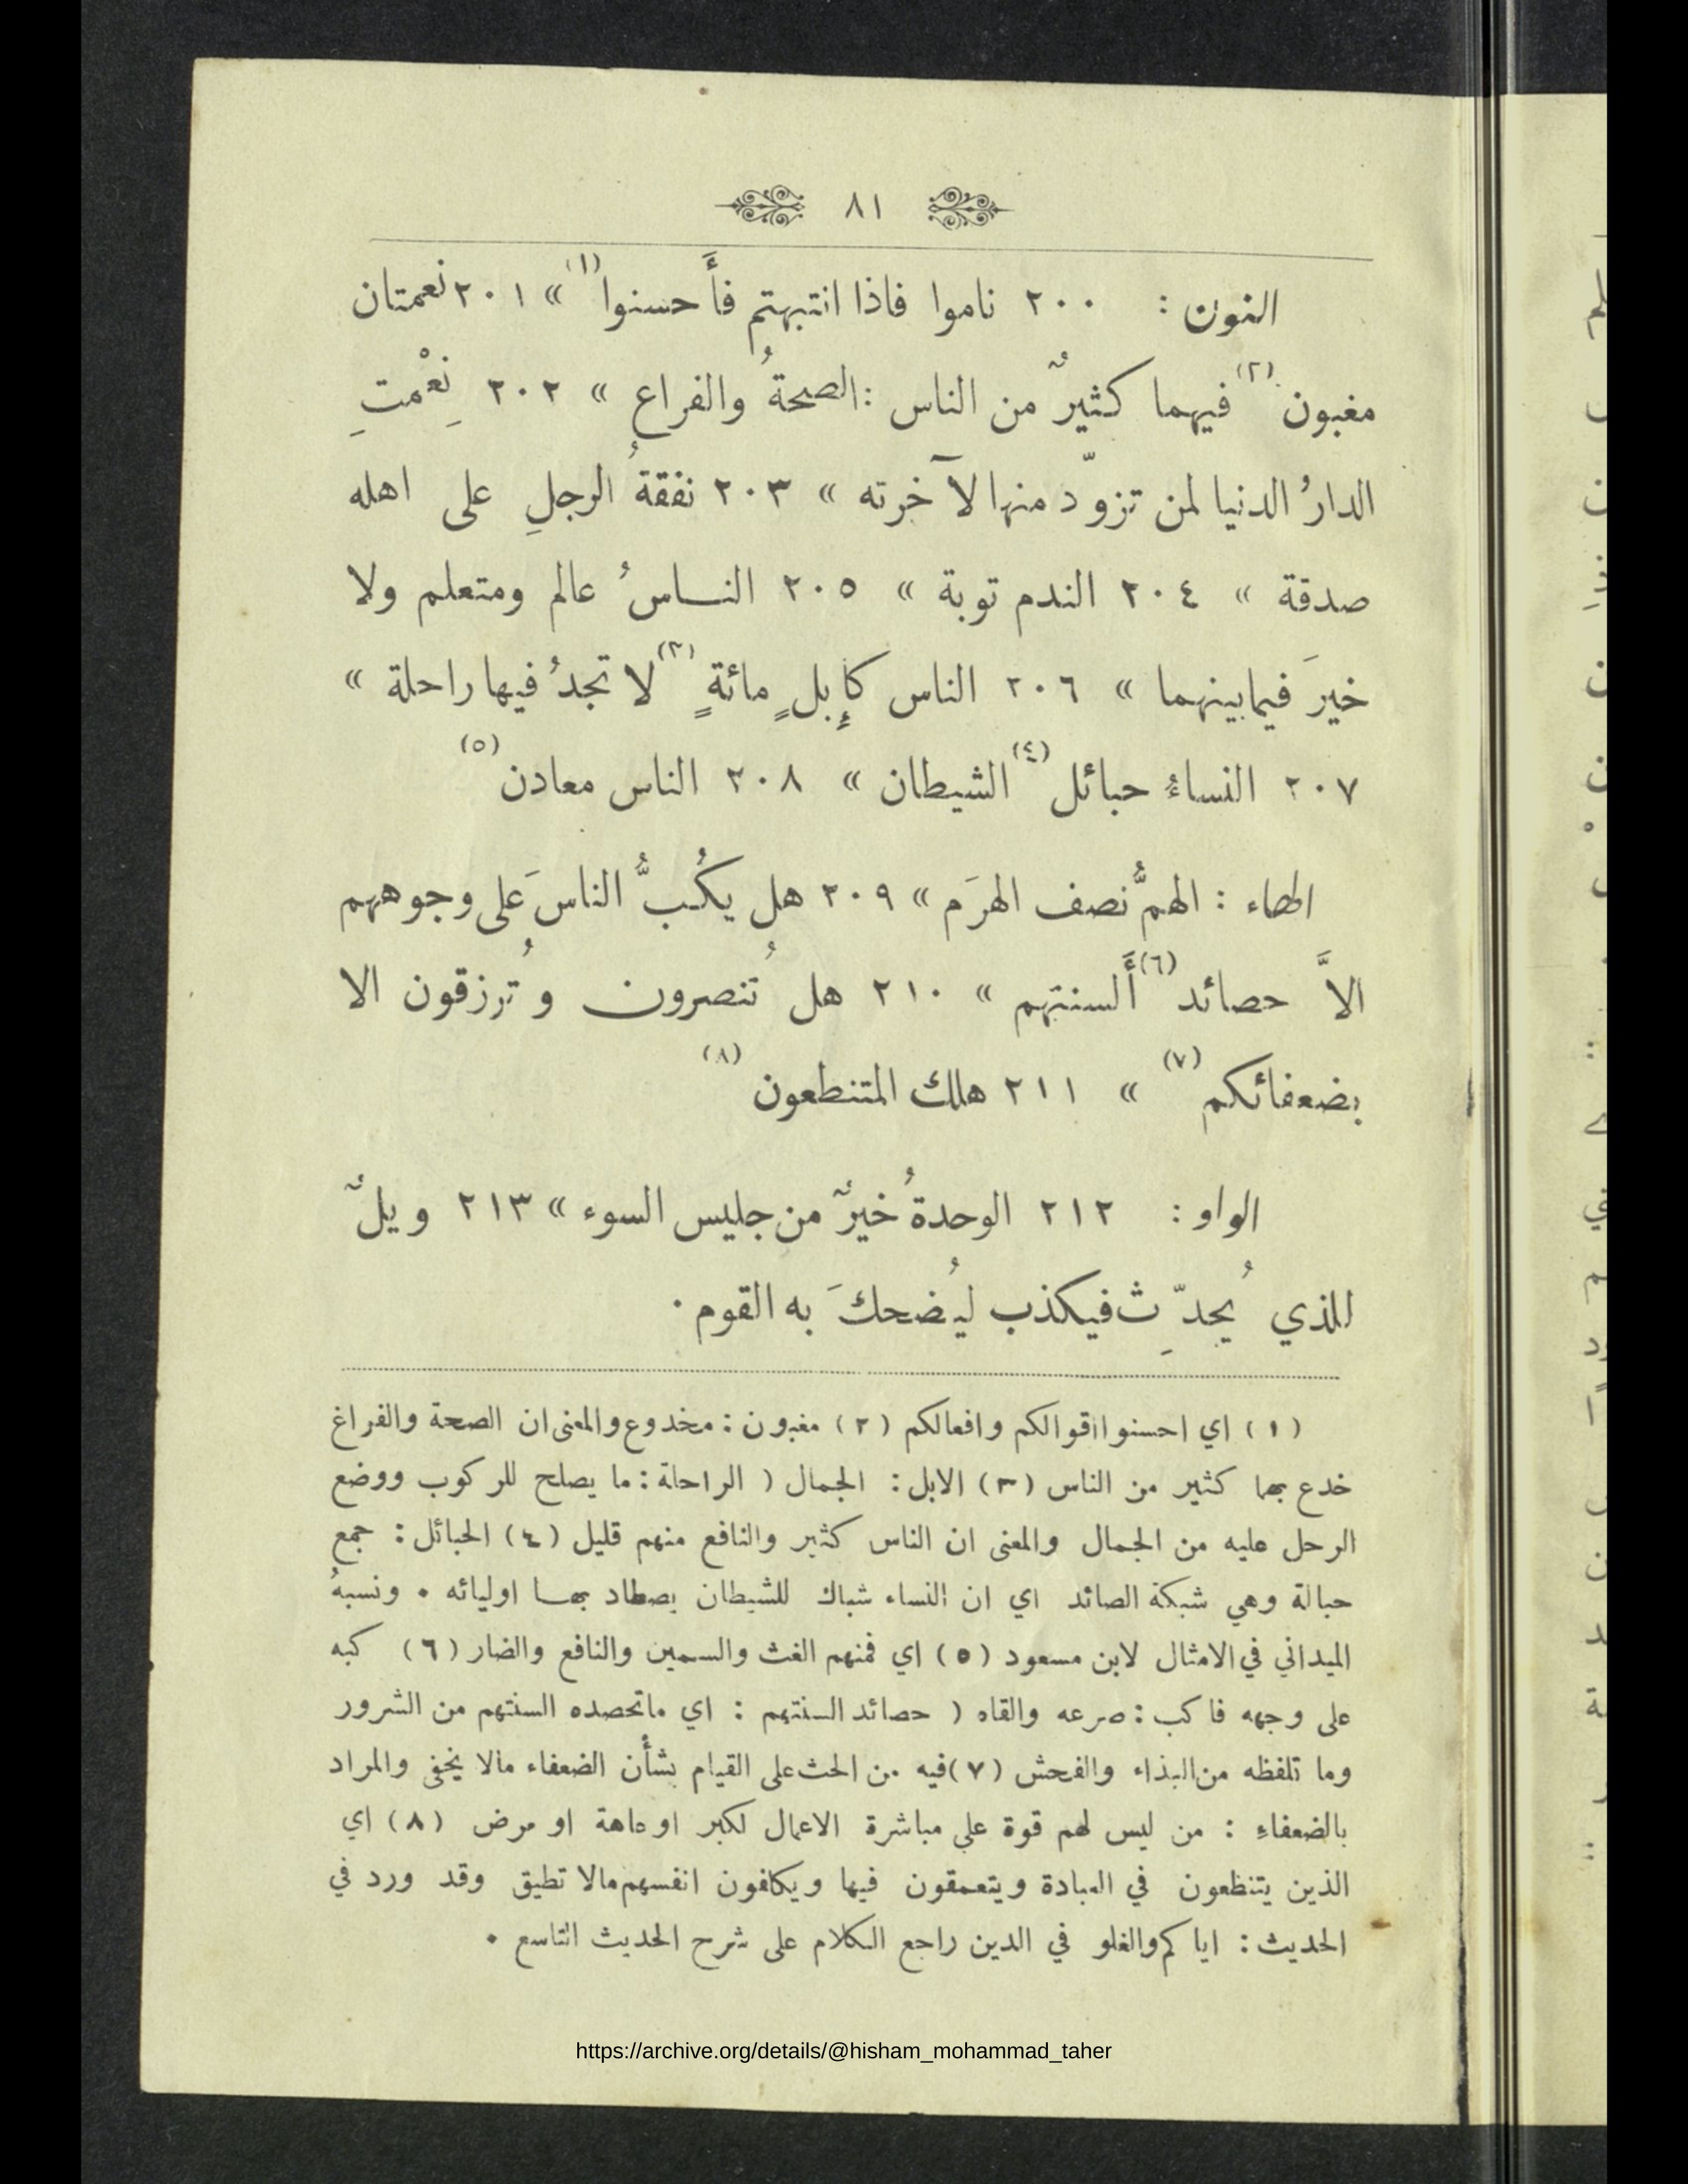 ٨١
النون : ٢٠٠ ناموا فاذا انتبهتم فأَحسنوا (١) » ٢٠١ نعمتان
مغبون (٢) فيهما كثيرٌ من الناس : الصحةُ والفراع » ٢٠٢ نِعْمتِ
الدارُ الدنيا لمن تزوّد منها لآخرته » ٢٠٣ نفقةُ الرجلِ على اهله
صدقة » ٢٠٤ الندم توبة » ٢٠٥ النـاسُ عالم ومتعلم ولا
خيرَ فيما بينهما » ٢٠٦ الناس كإِبلٍ مائةٍ (٣) لا تجدُ فيها راحلة »
٢٠٧ النساءُ حبائل (٤) الشيطان » ٢٠٨ الناس معادن (٥)
الهاء : الهمُّ نصف الهرَم » ٢٠٩ هل يكُبُّ الناسَ على وجوههم
الاَّ حصائد (٦) أَلسنتهم » ٢١٠ هل تُنصرون وتُرزقون الا
بضعفائكم (٧) » ٢١١ هلك المتنطعون (٨)
الواو : ٢١٢ الوحدةُ خيرٌ من جليس السوء » ٢١٣ ويلٌ
للذي يُحدّثِ فيكذب ليُضحكَ به القوم .
(١) اي احسنوا اقوالكم وافعالكم (٢) مغبون : مخدوع والمعنى ان الصحة والفراغ
خدع بهما كثير من الناس (٣) الابل : الجمال ( الراحلة : ما يصلح للركوب ووضع
الرحل عليه من الجمال والمعنى ان الناس كثير والنافع منهم قليل (٤) الحبائل : جمع
حبالة وهي شبكة الصائد اي ان النساء شباك للشيطان يصطاد بهـا اوليائه . ونسبهُ
الميداني في الامثال لابن مسعود (٥) اي فمنهم الغث والسمين والنافع والضار (٦) كبه
على وجهه فاكب : صرعه والقاه ( حصائد السنتهم : اي ماتحصده السنتهم من الشرور
وما تلفظه من البذاء والفحش (٧) فيه من الحث على القيام بشأن الضعفاء مالا يخفى والمراد
بالضعفاءِ : من ليس لهم قوة على مباشرة الاعمال لكبر او عاهة او مرض (٨) اي
الذين يتنطعون في العبادة ويتعمقون فيها ويكلفون انفسهم مالا تطيق وقد ورد في
الحديث : اياكم والغلو في الدين راجع الكلام على شرح الحديث التاسع .
https://archive.org/details/@hisham_mohammad_taher